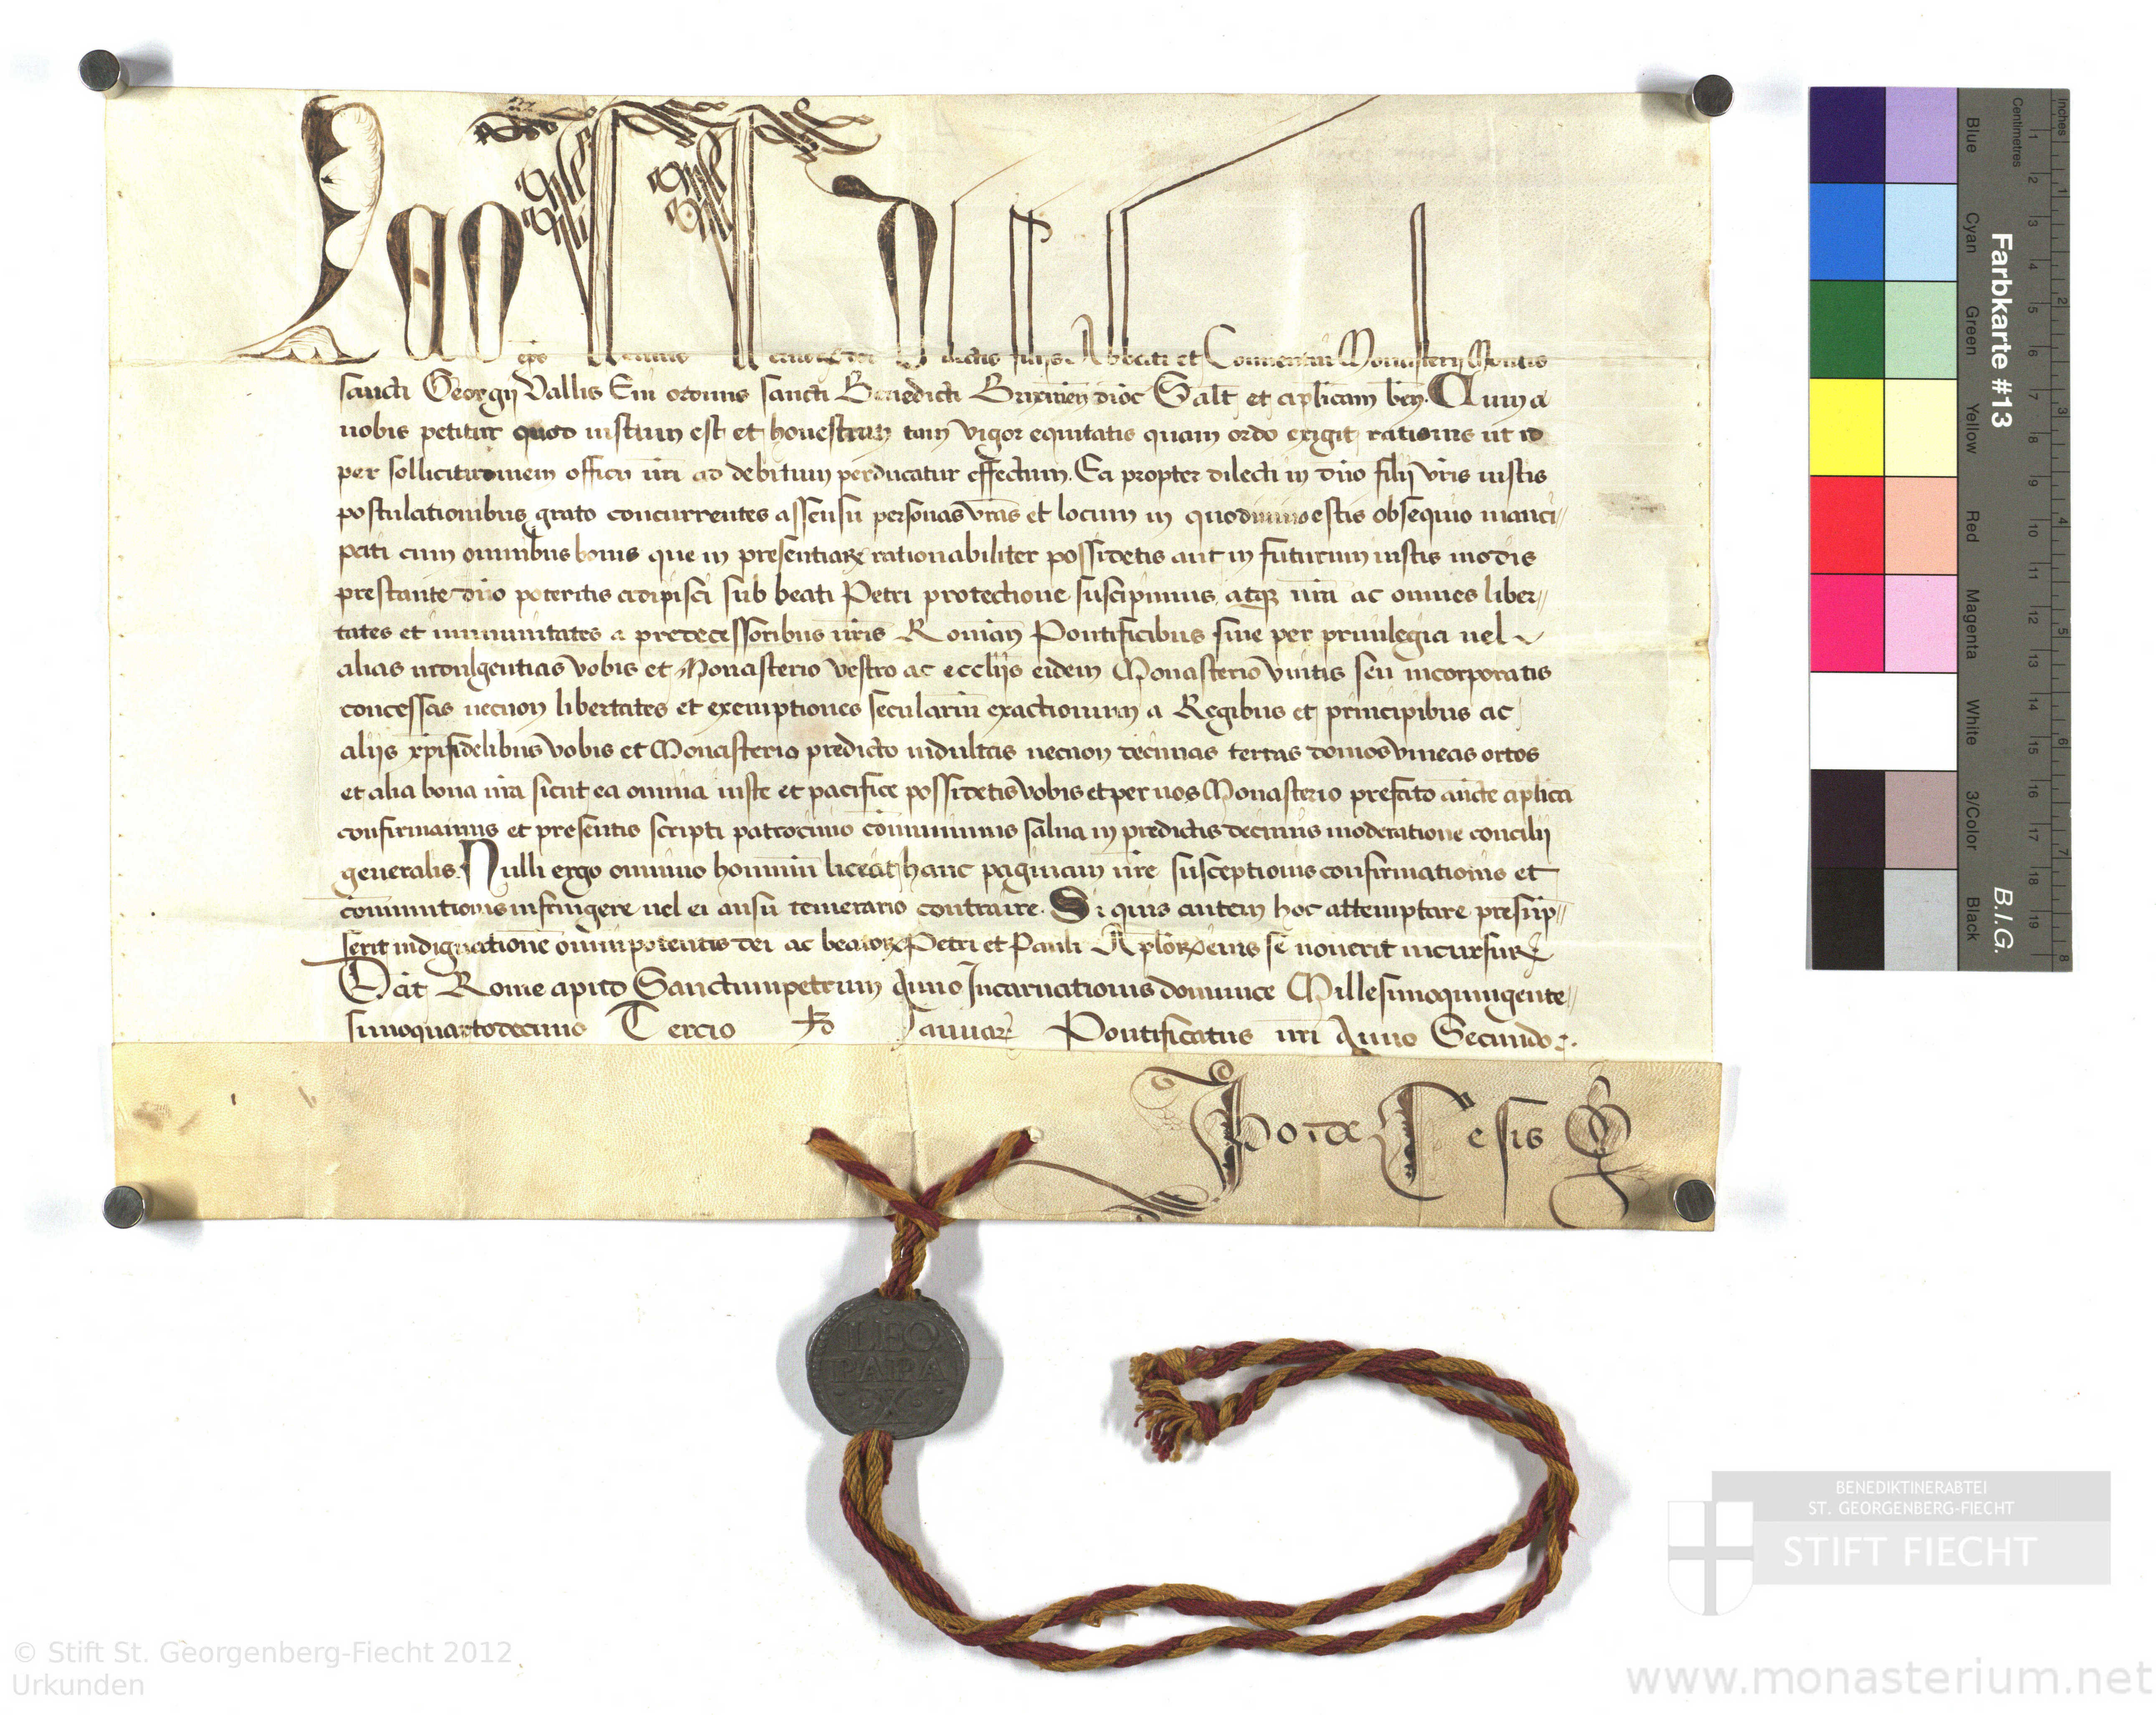 Leo eps seruus seruoꝝ dei Dilectis filijs Abbati et Conuentui Monasterij Montis
sancti Georgij Vallis Eni ordinis sancti Benedicti Brixinen dioc Salt et aplicam ben. Cum a
nobis petitur quod iustum est et honestum tam vigor equitatis quam ordo exigit rationis ut id
per sollicitudinem officii nri ad debitum perducatur effectum. Ea propter dilecti in dno filij vris iustis
postulationibus grato concurrentes assensu personas vras et locum in quo diuino estis obsequio manci//
pati cum omnibus bonis que in presentiaꝝ rationabiliter possidetis aut in futurum iustis modis
prestante dno poteritis adipisci sub beati Petri protectione suscipimus atqꝫ nra ac omnes liber//
tates et immunitates a predecessoribus nris Roman Pontificibus siue per priuilegia uel
alias indulgentias vobis et Monasterio vestro ac eccliis eidem Monasterio vnitis seu incorporatis
concessas necnon libertates et exemptiones seculariu exactionum a Regibus et principibus ac
aliis xpifidelibus vobis et Monasterio predicto indultas necnon decimas terras domos vineas ortos
et alia bona ura sicut ea omnia iuste et pacifice possidetis vobis et per uos Monasterio prefato aucte aplica
confirmamus et presentis scripti patrocinio comunimus salua in predictis decimis moderatione concilij
generalis. Nulli ergo omnino hominu liceat hanc paginam nre susceptionis confirmationis et
comunitionis infringere uel ei ausu temerario contraire. Si quis autem hoc attemptare presup//
serit indignatione omnipotentis dei ac beatoꝝ Petri et Pauli Aploꝝ eius se nouerit incursuꝝ
Dat Rome apud Sanctumpetrum Anno Incarnationis dominice Millesimoquingente//
simoquartodecimo Tercio kl Januar Pontificatus nri Anno Secundo
Jo de Cesis
LEO
PAPA
·X·
Inches
Centimetres
Farbkarte #13
B.I.G.
Blue
Cyan
Green
Yellow
Red
Magenta
White
3/Color
Black
1 2 3 4 5 6 7 8 9 10 11 12 13 14 15 16 17 18 19
1 2 3 4 5 6 7 8
BENEDIKTINERABTEI
ST. GEORGENBERG-FIECHT
STIFT FIECHT
© Stift St. Georgenberg-Fiecht 2012
Urkunden
www.monasterium.net